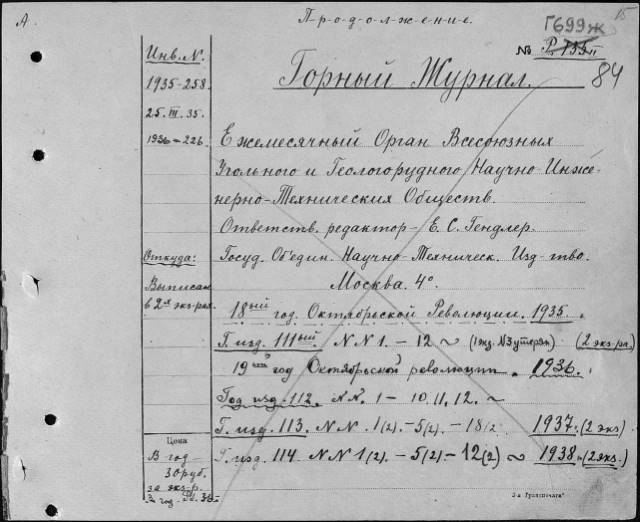 А.
Продолжение.
Г699ж
15
№ Р.155II
84
Инв. N.
1935-258.
25. III. 35.
1936-226.
Горный Журнал.
Ежемесячный Орган Всесоюзных
Угольного и Геологорудного Научно-Инже-
нерно-Технических Обществ.
Ответств. редактор - Е. С. Гендлер.
Откуда:
Выписан
в 2х экз-рах
Госуд. Объедин. Научно-Техническ. Изд-тво.
Москва. 4°.
18ый год. Октябрьской Революции. 1935.
Г. изд. 111ый. N N 1. - 12 ~ (1 экз. N 3 утерян) (2 экз-ра.)
19ый год Октябрьской революции. 1936.
Год изд. 112. N.N. 1 - 10. 11. 12. ~
Г. изд. 113. N N. 1(2). - 5(2) - 1812 1937. (2 экз)
Г. изд. 114 N N 1(2). - 5(2) - 12(2) ~ 1938. (2 экз.)
Цена
В год
30 руб.
за экз-р.